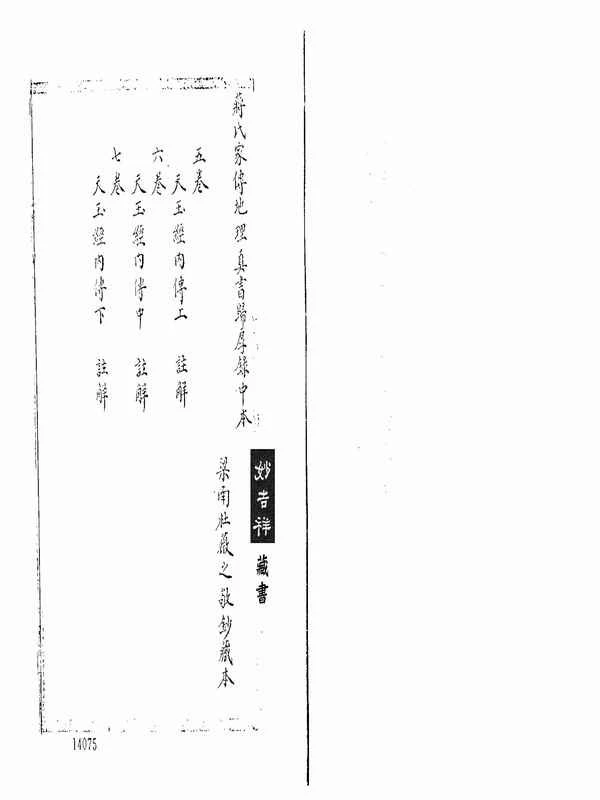 蔣氏家傳地理真書歸厚錄中本
妙吉祥
藏書
梁南杜薇之敬鈔藏本
五卷
天玉經內傳上 註解
六卷
天玉經內傳中 註解
七卷
天玉經內傳下 註解
14075